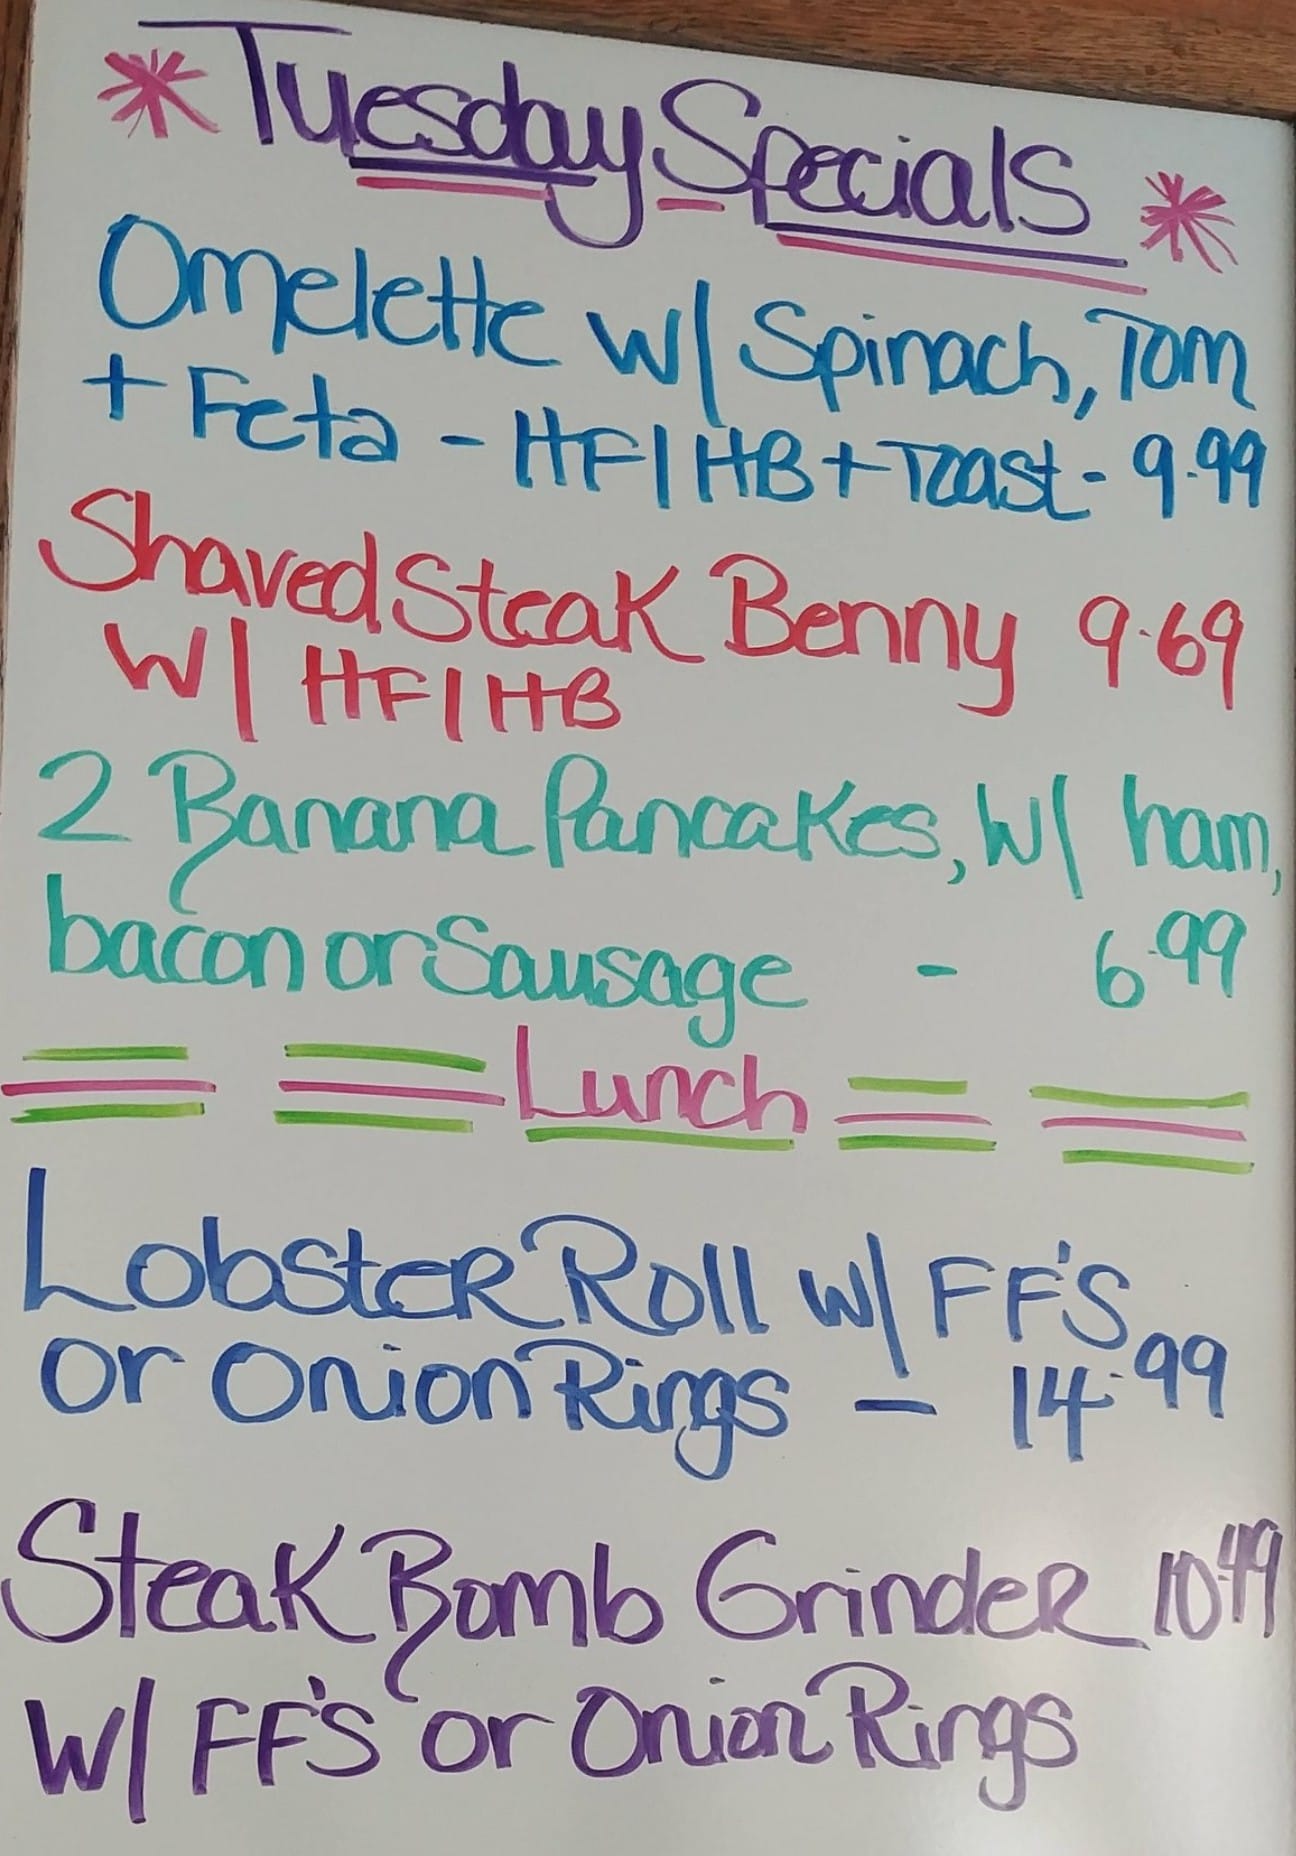 Tuesday Specials
Omelette w/ Spinach, Tom
+ Feta - HF/HB + Toast - 9.99
Shaved Steak Benny 9.69
w/ HF/HB
2 Banana Pancakes, w/ ham,
bacon or Sausage - 6.99
Lunch
Lobster Roll w/ FF'S
or Onion Rings - 14.99
Steak Bomb Grinder 10.49
w/ FF'S or Onion Rings